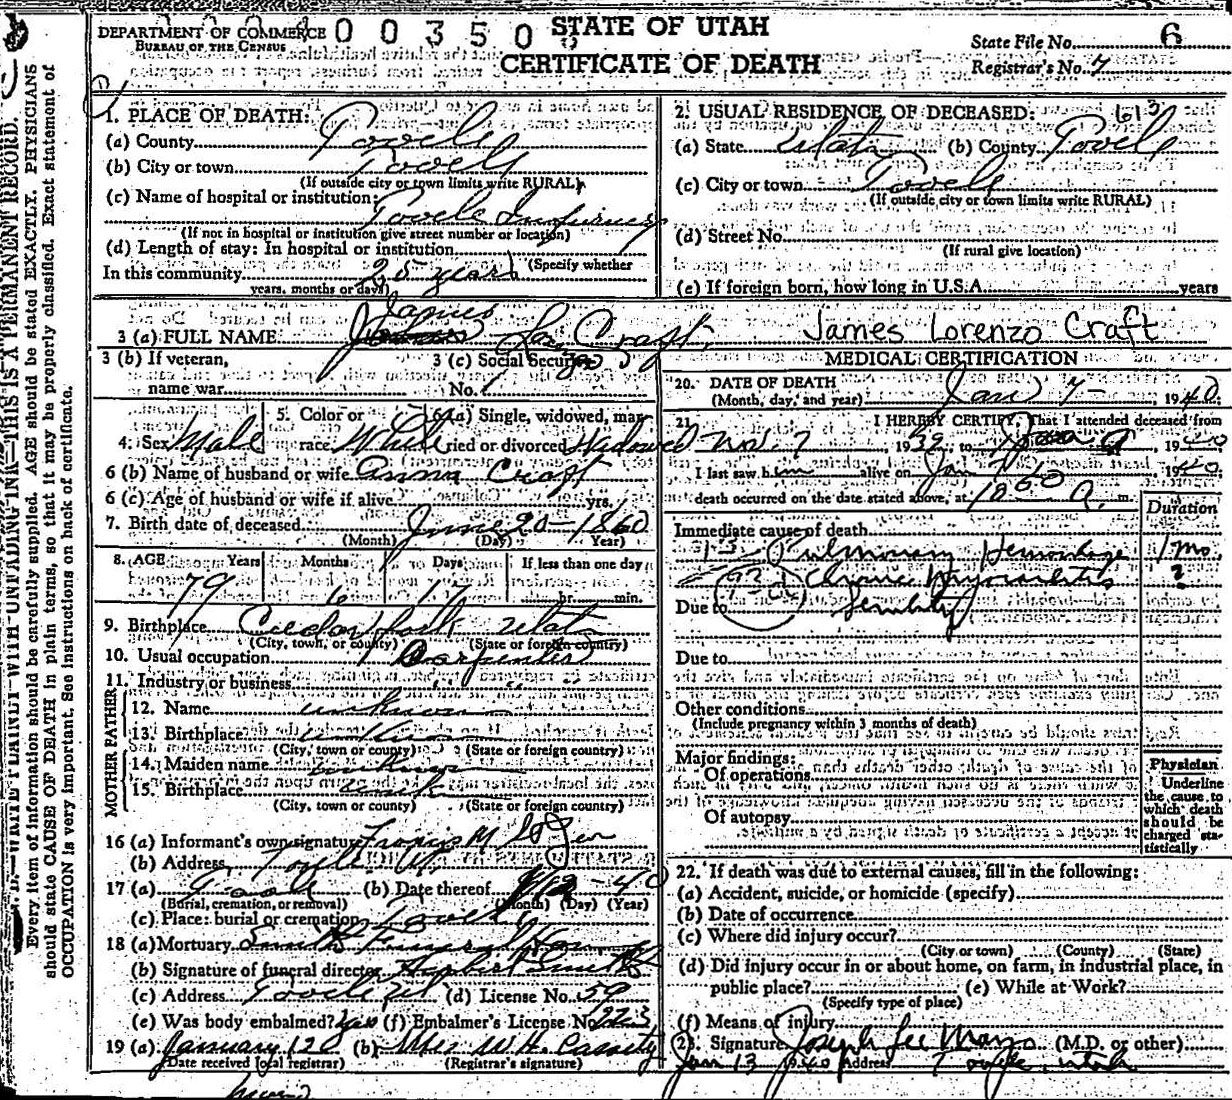 DEPARTMENT OF COMMERCE
BUREAU OF THE CENSUS
0 0 3 5 0
STATE OF UTAH
CERTIFICATE OF DEATH
State File No. 6
Registrar's No. 7
WRITE PLAINLY WITH UNFADING INK—THIS IS A PERMANENT RECORD.
Every item of information should be carefully supplied. AGE should be stated EXACTLY. PHYSICIANS
should state CAUSE OF DEATH in plain terms, so that it may be properly classified. Exact statement of
OCCUPATION is very important. See instructions on back of certificate.
1. PLACE OF DEATH:
(a) County Tooele
(b) City or town Tooele
(If outside city or town limits write RURAL)
(c) Name of hospital or institution:
Tooele Infirmary
(If not in hospital or institution give street number or location)
(d) Length of stay: In hospital or institution
(Specify whether
In this community 25 years
years, months or days)
2. USUAL RESIDENCE OF DECEASED: 613
(a) State Utah (b) County Tooele
(c) City or town Tooele
(If outside city or town limits write RURAL)
(d) Street No.
(If rural give location)
(e) If foreign born, how long in U.S.A. years
3 (a) FULL NAME James Craft James Lorenzo Craft
3 (b) If veteran,
name war
3 (c) Social Security
No.
4. Sex Male
5. Color or
race White
6 (a) Single, widowed, mar-
ried or divorced Widowed
6 (b) Name of husband or wife Anna Craft
6 (c) Age of husband or wife if alive yrs.
7. Birth date of deceased June 20 - 1860
(Month) (Day) (Year)
8. AGE Years Months Days If less than one day
79 6 17 hr. min.
9. Birthplace Cedar Fork Utah
(City, town, or county) (State or foreign country)
10. Usual occupation Carpenter
11. Industry or business " "
FATHER
12. Name unknown
13. Birthplace unknown
(City, town or county) (State or foreign country)
MOTHER
14. Maiden name unknown
15. Birthplace unk
(City, town or county) (State or foreign country)
16 (a) Informant's own signature Francis M.
(b) Address Tooele Ut
17 (a) (b) Date thereof 12 - 40
(Burial, cremation, or removal) (Month) (Day) (Year)
(c) Place: burial or cremation Tooele
18 (a) Mortuary Smith Funeral Home
(b) Signature of funeral director Herbert Smith
(c) Address Tooele Ut (d) License No. 59
(e) Was body embalmed? yes (f) Embalmer's License No. 223
19 (a) January 12 (b) Mrs W.H. Cassity
(Date received local registrar) (Registrar's signature)
MEDICAL CERTIFICATION
20. DATE OF DEATH Jan 7 - 1940
(Month, day, and year)
21. I HEREBY CERTIFY, That I attended deceased from
Nov. 7, 1939, to , 1940
I last saw him alive on Jan 7 1940
death occurred on the date stated above, at 12 50 A. m.
Duration
Immediate cause of death
Pulmonary Hemorrhage 1 mo.
Chronic Myocarditis ?
Due to Senility
Due to
Other conditions
(Include pregnancy within 3 months of death)
Major findings:
Of operations
Of autopsy
Physician
Underline
the cause to
which death
should be
charged sta-
tistically
22. If death was due to external causes, fill in the following:
(a) Accident, suicide, or homicide (specify)
(b) Date of occurrence
(c) Where did injury occur?
(City or town) (County) (State)
(d) Did injury occur in or about home, on farm, in industrial place, in
public place? (e) While at Work?
(Specify type of place)
(f) Means of injury
23. Signature Joseph Lee (M.D. or other)
Jan 13 1940 Address Tooele, Utah